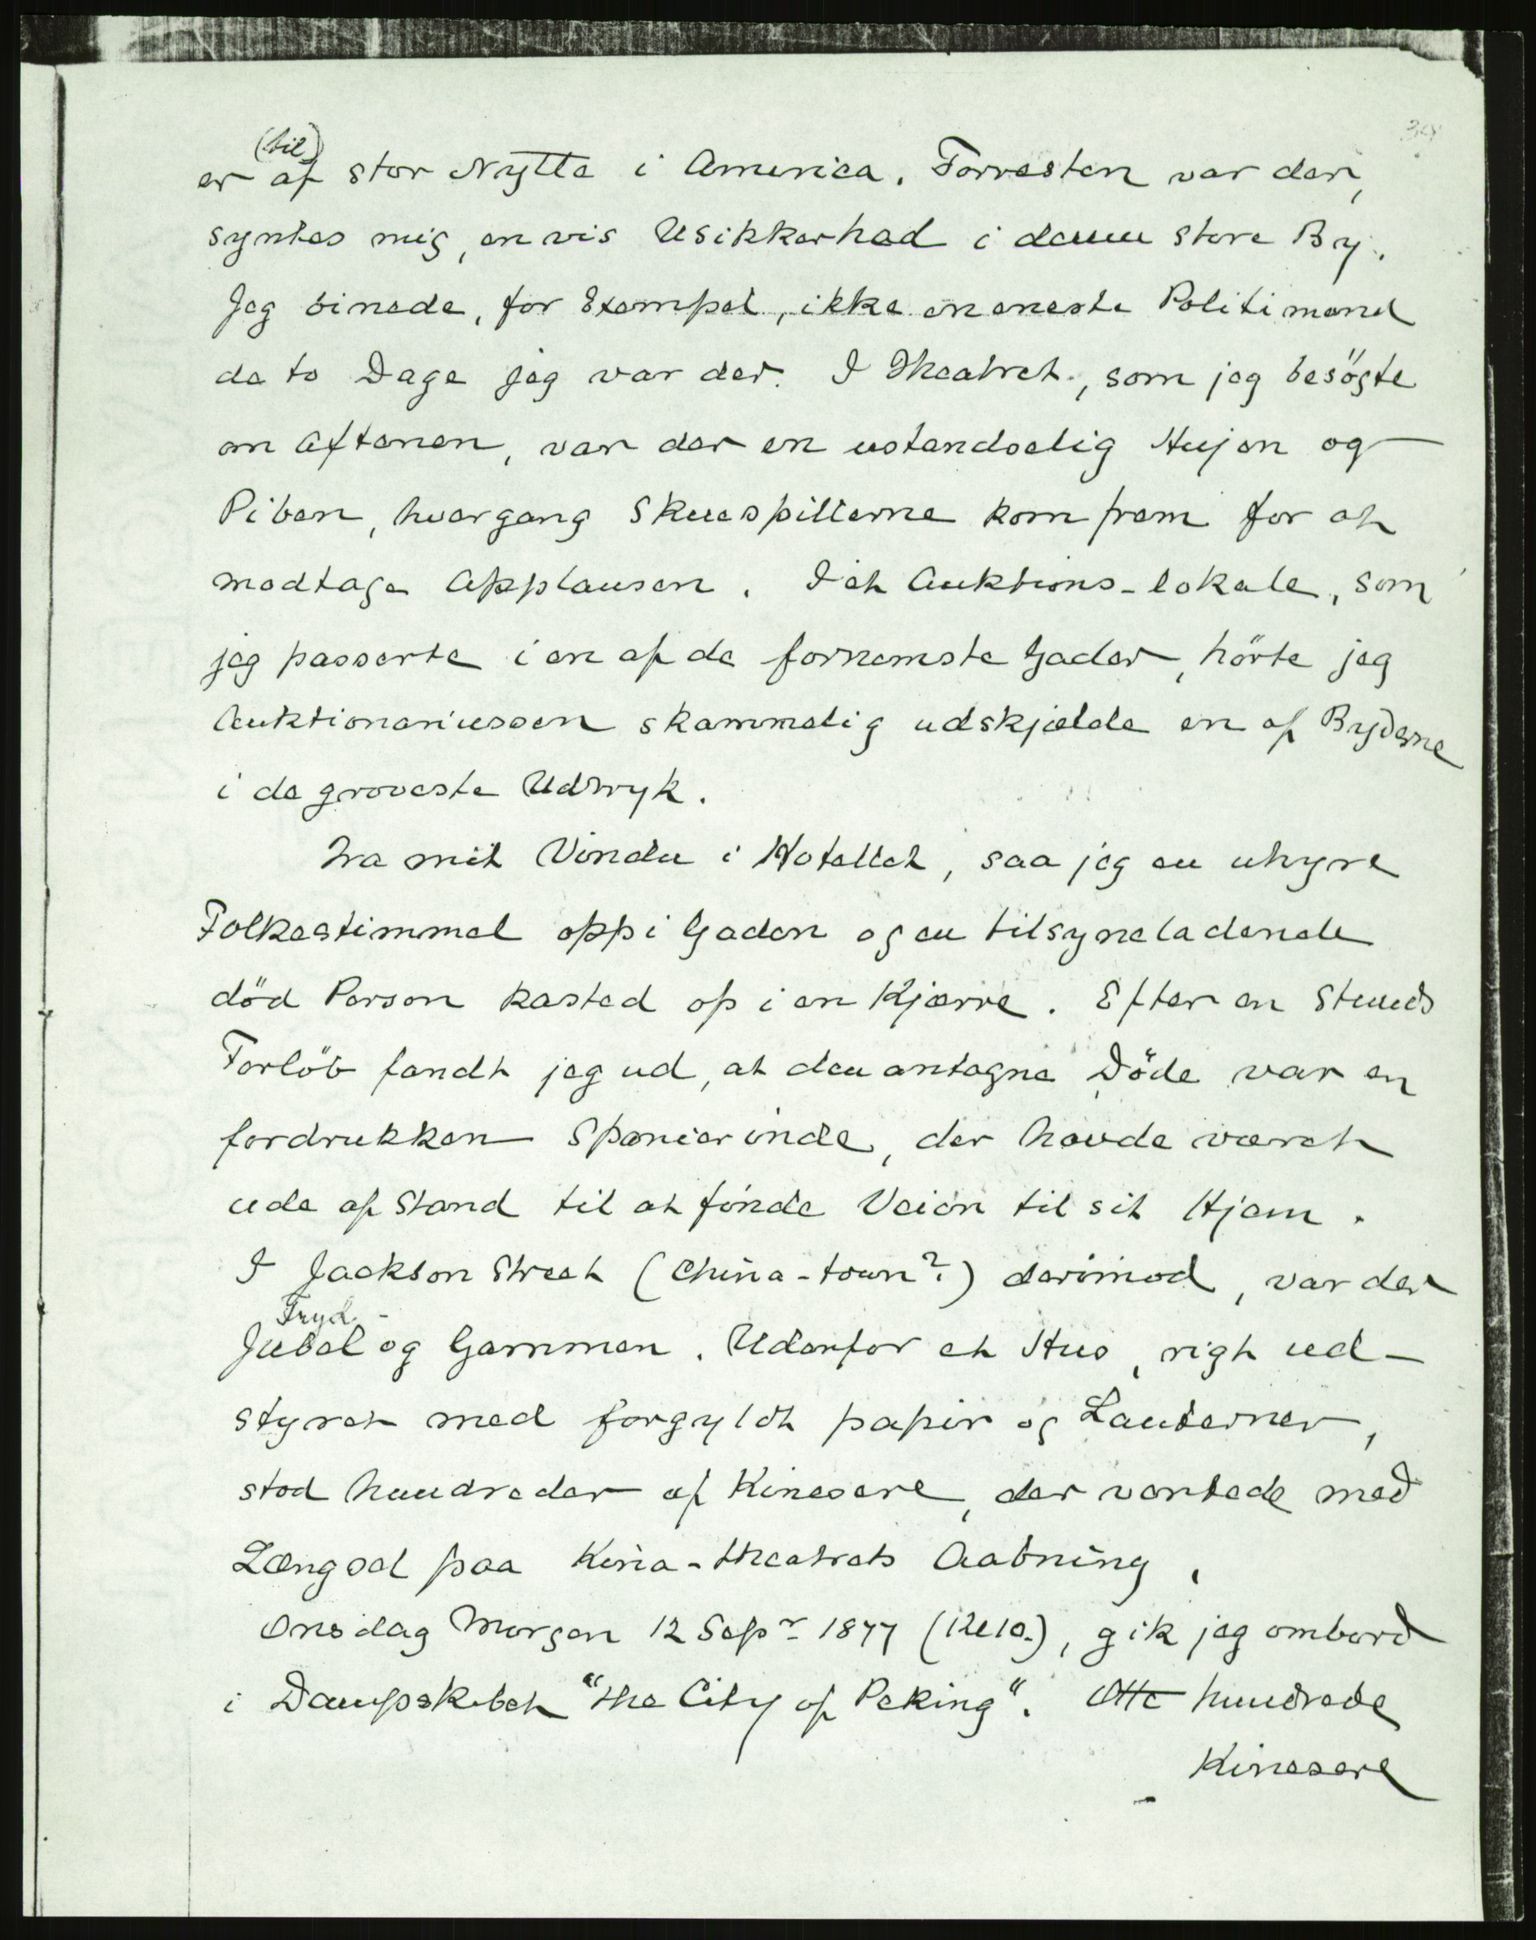 34
(til)
er af stor Nytte i America. Forresten var der,
syntes mig, en vis Usikkerhed i denne store By.
Jeg sinede, for Exempel, ikke en eneste Politimand
de to Dage jeg var der. I Theatret, som jeg besögte
om Aftenen, var der en ustandselig Hujen og
Piben, hvergang Skuespillerne kom frem for at
modtage Applausen. I et Auktions-lokale, som
jeg passerte i en af de fornemste Gader, hörte jeg
Auktionariussen skammelig udskjælde en af Byderne
i de groveste Udtryk.
Fra mit Vindu i Hotellet, saa jeg en uhyre
Folkestimmel opp i Gaden og en tilsyneladende
död Person kasted op i en Kjærre. Efter en Stunds
Forlöb fandt jeg ud, at den antagne Döde var en
fordrukken Spanierinde, der havde været
ude af Stand til at finde Veien til sit Hjem.
I Jackson Street (China-town?) derimod, var der
Fryd-
Jubel og Gammen. Udenfor et Hus, rigt ud-
styret med forgyldt papir og Lanterner,
stod hundreder af Kinesere, der ventede med
Længsel paa Kina-theatrets Aabning.
Onsdag Morgen 12 Sepr 1877 (Kl 10.), gik jeg ombord
i Dampskibet "the City of Peking". Otte hundrede
Kinesere